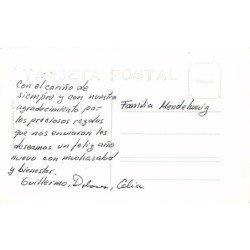 TARJETA POSTAL
Con el cariño de
siempre y con nuestro
agradecimiento por
los preciosos regalos
que nos enviaron les
deseamos un feliz año
nuevo con mucha salud
y bienestar.
Guillermo, Dolores, Celia
Familia Mendelwaig